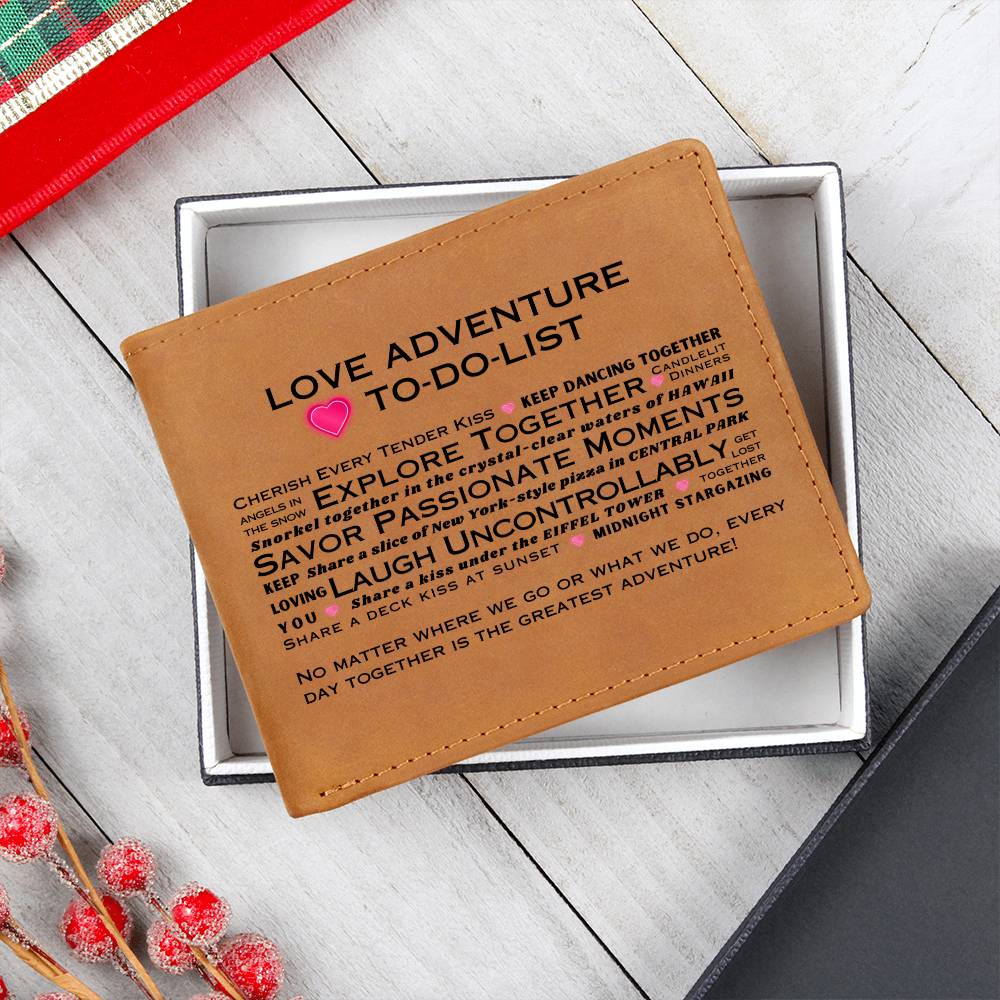 LOVE ADVENTURE
TO-DO-LIST
CHERISH EVERY TENDER KISS KEEP DANCING TOGETHER
ANGELS IN THE SNOW EXPLORE TOGETHER CANDLELIT DINNERS
Snorkel together in the crystal-clear waters of HAWAII
SAVOR PASSIONATE MOMENTS
KEEP Share a slice of New York-style pizza in CENTRAL PARK
LOVING LAUGH UNCONTROLLABLY GET LOST TOGETHER
YOU Share a kiss under the EIFFEL TOWER
SHARE A DECK KISS AT SUNSET MIDNIGHT STARGAZING
NO MATTER WHERE WE GO OR WHAT WE DO, EVERY
DAY TOGETHER IS THE GREATEST ADVENTURE!